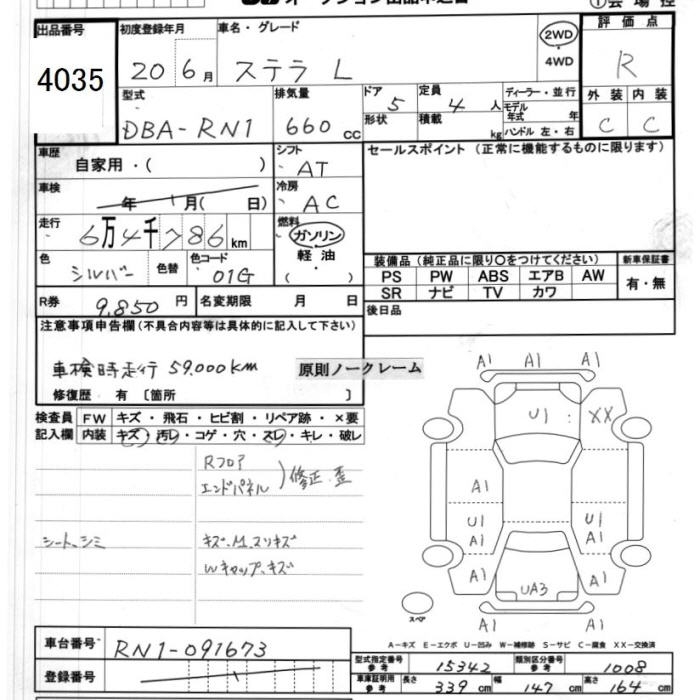 オークション出品申込書
①会場控
出品番号
4035
初度登録年月
20 6 月
車名・グレード
ステラ L
2WD
・
4WD
評価点
R
型式
DBA-RN1
排気量
660 cc
ドア
5
形状
定員
4 人
積載
kg
ディーラー・並行
モデル年式 年
ハンドル 左・右
外装 内装
C C
車歴
自家用・( )
シフト
AT
セールスポイント (正常に機能するものに限ります)
車検
年 月( 日)
冷房
AC
走行
6万4千786 km
燃料
ガソリン
軽油
( )
色
シルバー
色替
色コード
01G
装備品 (純正品に限り〇をつけてください)
新車保証書
PS PW ABS エアB AW
SR ナビ TV カワ
有・無
R券
9,850 円
名変期限 月 日
後日品
注意事項申告欄 (不具合内容等は具体的に記入して下さい)
車検時走行 59,000km
原則ノークレーム
修復歴 有 〔箇所 〕
検査員
記入欄
FW キズ・飛石・ヒビ割・リペア跡・×要
内装 キズ・汚レ・コゲ・穴・スレ・キレ・破レ
Rフロア
エンドパネル
修正、歪
シート、シミ
キズ、M、スリキズ
Wキャップ、キズ
A1 A1 A1
U1
XX
A1 A1
U1 U1
A1 A1
A1 A1
UA3
A1 A1
スペア
A-キズ E-エクボ U-凹み W-補修跡 S-サビ C-腐食 XX-交換済
車台番号
RN1-091673
登録番号
型式指定番号
参考
15342
類別区分番号
参考
1008
車庫証明用
参考
長さ
339 cm
幅
147 cm
高さ
164 cm